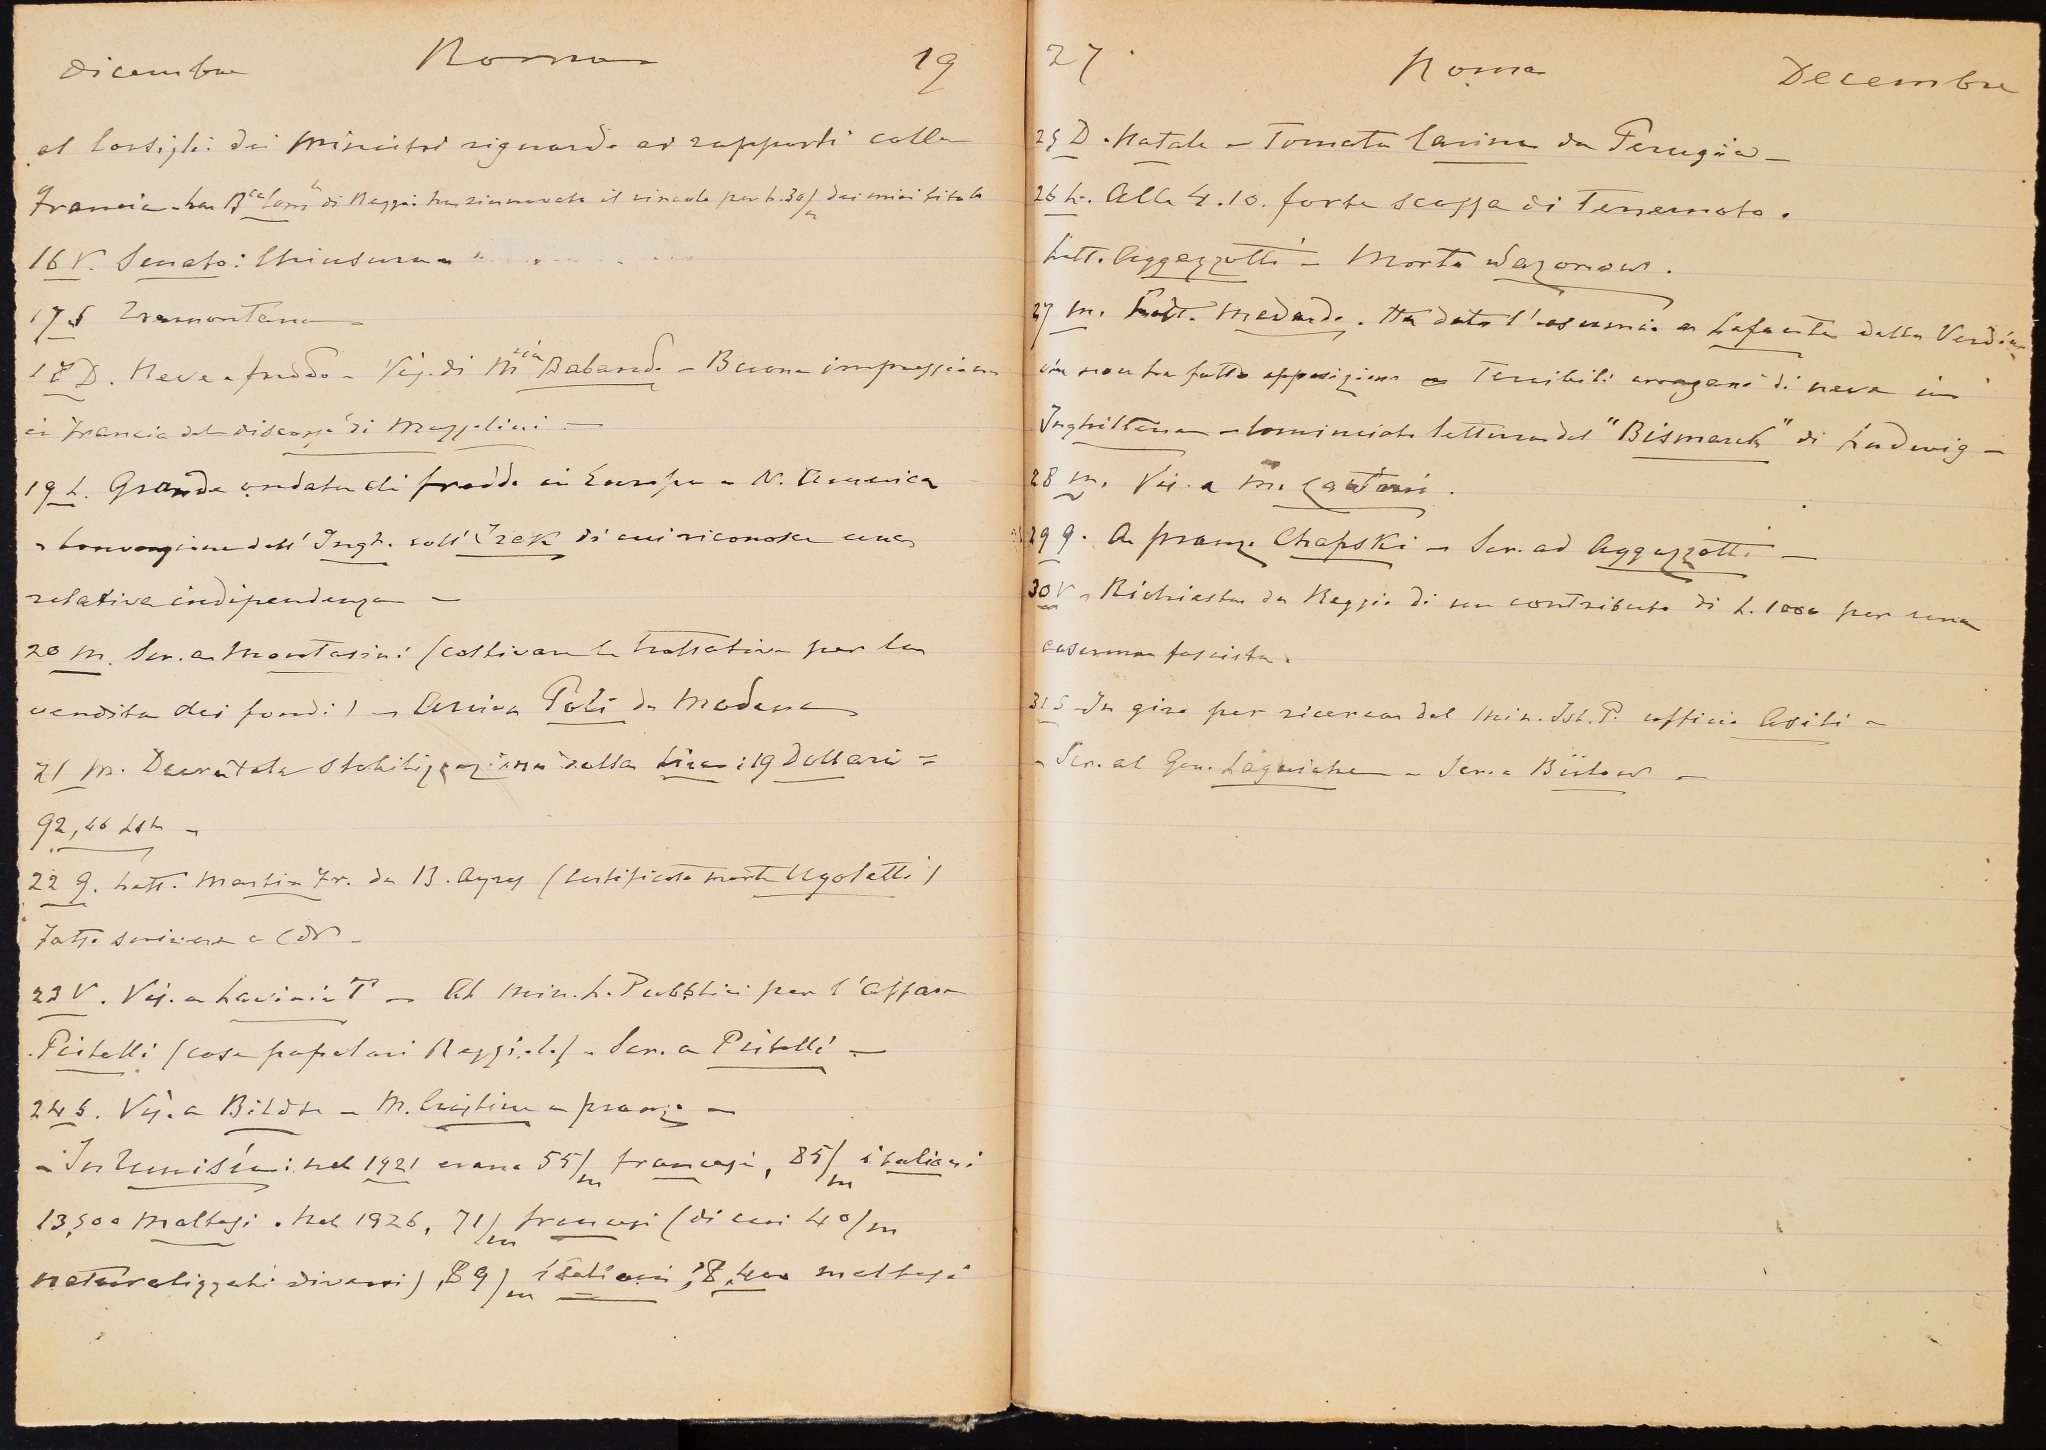 Dicembre Roma 19
al Consiglio dei Ministri riguardo ai rapporti colla
Francia - La B. di Reggio ha rinnovato il vincolo per L. 30/m dei miei titoli
16 V. Senato: Chiusura -
17 S Tramontana -
18 D. Neve e freddo - Vis. di Babando - Buona impressione
in Francia del discorso di Mussolini -
19 L. Grande ondata di freddo in Europa e N. America
- Convenzione dell' Ingh. coll' Irak di cui riconosce una
relativa indipendenza -
20 M. Scr. a Montasini (coltivare le trattative per la
vendita dei fondi) - Arriva Poli da Modena
21 M. Decretata stabilizzazione della Lira: 19 Dollari =
92,46 Lst -
22 G. Lett. Martin Fr. da B. Ayres (certificato morte Ugoletti)
Fatto scrivere a
23 V. Vis. a Lavinia T - Al Min. L. Pubblici per l'affare
Pitelli (case popolari Reggiolo) - Scr. a Pitelli -
24 S. Vis. a Bildt - M. Cristina a pranzo -
- In Tunisia: nel 1921 erano 55/m francesi, 85/m italiani
13,500 Maltesi. Nel 1926, 71/m francesi (di cui 40/m
naturalizzati diversi), 89/m italiani, 8,400 maltesi
27 Roma Decembre
25 D. Natale - Tornata Carina da Perugia -
26 L. Alle 4.10. forte scossa di Terremoto.
Lett. Aggazzotti - Morto Sazonow.
27 M. Lett. Medardo. Ha dato l' a Lafaente della
non ha fatto opposizione - Terribili uragani di neve in
Inghilterra - Cominciato lettura del "Bismarck" di Ludwig -
28 M. Vis. a M. Cantoni.
29 G. A pranzo Chapski - Scr. ad Aggazzotti -
30 V - Richiesta da Reggio di un contributo di L. 1000 per una
caserma fascista.
31 S In giro per ricerca del Min. Ist. P. ufficio Asili -
- Scr. al Gen. Laguiche - Scr. a Bülow -